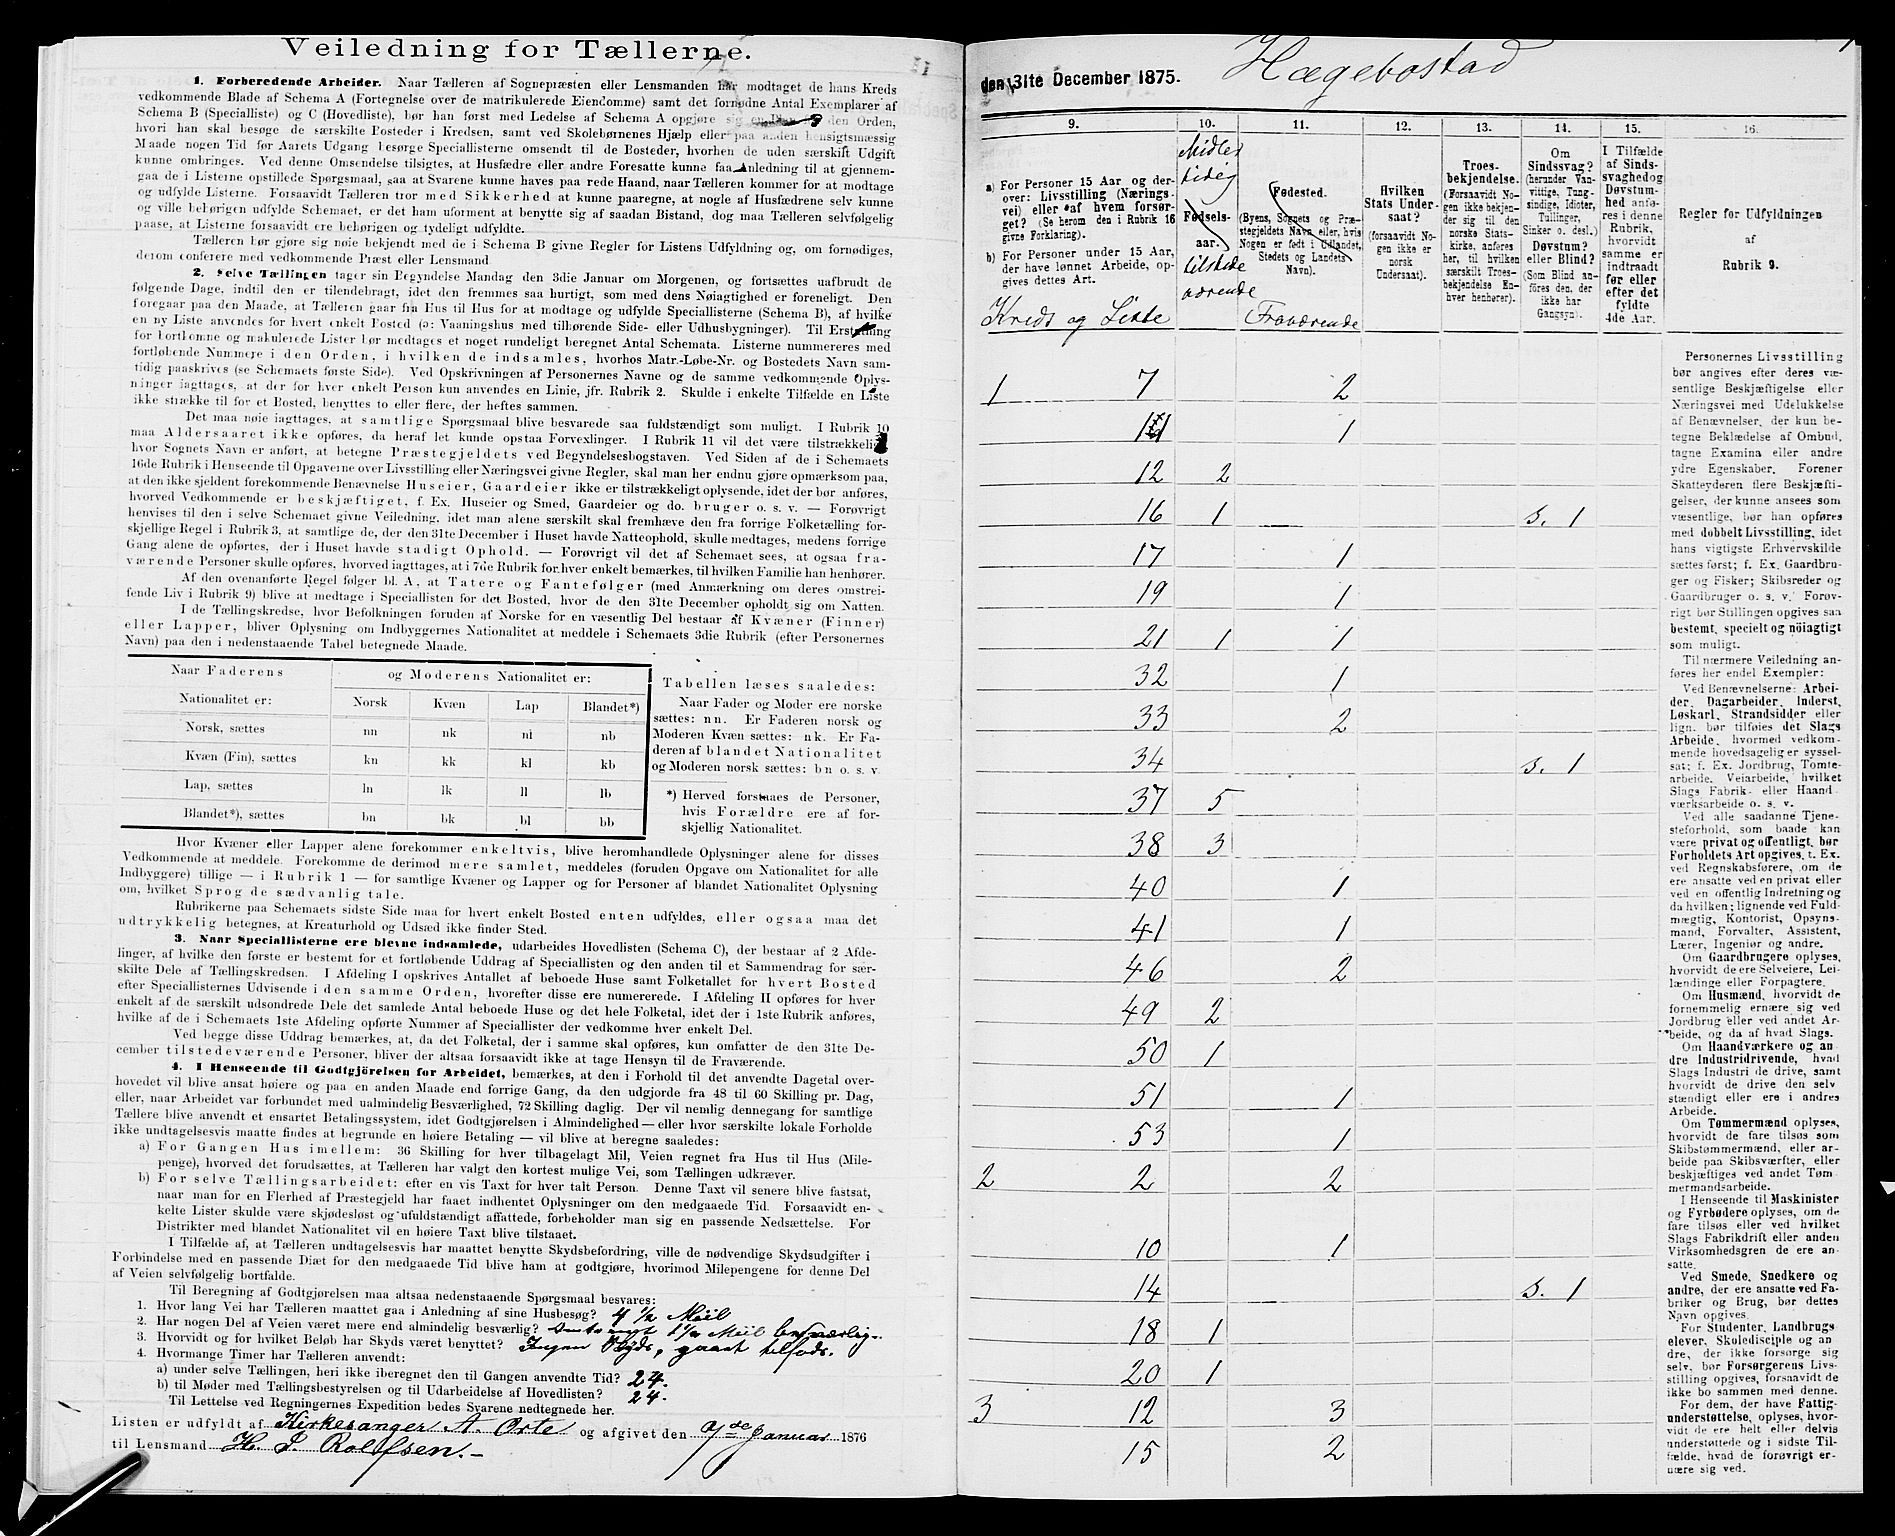 Veiledning for Tællerne.
1. Forberedende Arbeider. Naar Tælleren af Sognepræsten eller Lensmanden har modtaget de hans Kreds
vedkommende Blade af Schema A (Fortegnelse over de matrikulerede Eiendomme) samt det fornødne Antal Exemplarer af
Schema B (Specialliste) og C (Hovedliste), bør han først med Ledelse af Schema A opgjøre sig en den Orden,
hvori han skal besøge de særskilte Bosteder i Kredsen, samt ved Skolebørnenes Hjælp eller paa anden hensigtsmæssig
Maade nogen Tid før Aarets Udgang besørge Speciallisterne omsendt til de Bosteder, hvorhen de uden særskilt Udgift
kunne ombringes. Ved denne Omsendelse tilsigtes, at Husfædre eller andre Foresatte kunne faa Anledning til at gjennem-
gaa de i Listerne opstillede Spørgsmaal, saa at Svarene kunne haves paa rede Haand, naar Tælleren kommer for at modtage
og udfylde Listerne. Forsaavidt Tælleren tror med Sikkerhed at kunne paaregne, at nogle af Husfædrene selv kunne
og ville behørigen udfylde Schemaet, er det ham uforment at benytte sig af saadan Bistand, dog maa Tælleren selvfølgelig
paase, at Listerne forsaavidt ere behørigen og tydeligt udfyldte.
Tælleren bør gjøre sig nøie bekjendt med de i Schema B givne Regler for Listens Udfyldning og, om fornødiges,
derom conferere med vedkommende Præst eller Lensmand.
2. Selve Tællingen tager sin Begyndelse Mandag den 3die Januar om Morgenen, og fortsættes uafbrudt de
følgende Dage, indtil den er tilendebragt, idet den fremmes saa hurtigt, som med dens Nøiagtighed er foreneligt. Den
foregaar paa den Maade, at Tælleren gaar fra Hus til Hus for at modtage og udfylde Speciallisterne (Schema B), af hvilke
en ny Liste anvendes for hvert enkelt Bosted (ɔ: Vaaningshus med tilhørende Side- eller Udhusbygninger). Til Erstatning
for bortkomne og makulerede Lister bør medtages et noget rundeligt beregnet Antal Schemata. Listerne nummereres med
fortløbende Nummere i den Orden, i hvilken de indsamles, hvorhos Matr.-Løbe-Nr. og Bostedets Navn sam-
tidig paaskrives (se Schemaets første Side). Ved Opskrivningen af Personernes Navne og de samme vedkommende Oplys-
ninger iagttages, at der for hver enkelt Person kun anvendes en Linie, jfr. Rubrik 2. Skulde i enkelte Tilfælde en Liste
ikke strække til for et Bosted, benyttes to eller flere, der heftes sammen.
Det maa nøie iagttages, at samtlige Spørgsmaal blive besvarede saa fuldstændigt som muligt. I Rubrik 10
maa Aldersaaret ikke opføres, da heraf let kunde opstaa Forvexlinger. I Rubrik 11 vil det være tilstrækkeligt,
hvor Sognets Navn er anført, at betegne Præstegjeldets ved Begyndelsesbogstaven. Ved Siden af de i Schemaets
16de Rubrik i Henseende til Opgaverne over Livsstilling eller Næringsvei givne Regler, skal man her endnu gjøre opmærksom paa,
at den ikke sjeldent forekommende Benævnelse Huseier, Gaardeier ikke er tilstrækkeligt oplysende, idet der bør anføres,
hvorved Vedkommende er beskjæftiget, f. Ex. Huseier og Smed, Gaardeier og do. bruger o. s. v. — Forøvrigt
henvises til den i selve Schemaet givne Veiledning, idet man alene særskilt skal fremhæve den fra forrige Folketælling for-
skjellige Regel i Rubrik 3, at samtlige de, der den 31te December i Huset havde Natteophold, skulle medtages, medens forrige
Gang alene de opførtes, der i Huset havde stadigt Ophold. — Forøvrigt vil det af Schemaet sees, at ogsaa fra-
værende Personer skulle opføres, hvorved iagttages, at i 7de Rubrik for hver enkelt bemærkes, til hvilken Familie han henhører.
Af den ovenanførte Regel følger bl. A., at Tatere og Fantefølger (med Anmærkning om deres omstrei-
fende Liv i Rubrik 9) blive at medtage i Speciallisten for det Bosted, hvor de den 31te December opholdt sig om Natten.
I de Tællingskredse, hvor Befolkningen foruden af Norske for en væsentlig Del bestaar af Kvæner (Finner)
eller Lapper, bliver Oplysning om Indbyggernes Nationalitet at meddele i Schemaets 3die Rubrik (efter Personernes
Navn) paa den i nedenstaaende Tabel betegnede Maade.
Naar Faderens og Moderens Nationalitet er:
Nationalitet er: Norsk Kvæn Lap Blandet*)
Norsk, sættes nn nk nl nb
Kvæn (Fin), sættes kn kk kl kb
Lap, sættes ln lk ll lb
Blandet*), sættes bn bk bl bb
Tabellen læses saaledes:
Naar Fader og Moder ere norske
sættes: nn. Er Faderen norsk og
Moderen Kvæn sættes: nk. Er Fa-
deren af blandet Nationalitet
og Moderen norsk sættes: bn o. s. v.
*) Herved forstaaes de Personer,
hvis Forældre ere af for-
skjellig Nationalitet.
Hvor Kvæner eller Lapper alene forekommer enkeltvis, blive heromhandlede Oplysninger alene for disses
Vedkommende at meddele. Forekomme de derimod mere samlet, meddeles (foruden Opgave om Nationalitet for alle
Indbyggere) tillige — i Rubrik 1 — for samtlige Kvæner og Lapper og for Personer af blandet Nationalitet Oplysning
om, hvilket Sprog de sædvanlig tale.
Rubrikerne paa Schemaets sidste Side maa for hvert enkelt Bosted enten udfyldes, eller ogsaa maa det
udtrykkelig betegnes, at Kreaturhold og Udsæd ikke finder Sted.
3. Naar Speciallisterne ere blevne indsamlede, udarbeides Hovedlisten (Schema C), der bestaar af 2 Afde-
linger, af hvilke den første er bestemt for et fortløbende Uddrag af Speciallisten og den anden til et Sammendrag for sær-
skilte Dele af Tællingskredsen. I Afdeling I opskrives Antallet af beboede Huse samt Folketallet for hvert Bosted
efter Speciallisternes Udvisende i den samme Orden, hvorefter disse ere nummererede. I Afdeling II opføres for hver
enkelt af de særskilt udsondrede Dele det samlede Antal beboede Huse og det hele Folketal, idet der i 1ste Rubrik anføres,
hvilke af de i Schemaets 1ste Afdeling opførte Nummer af Speciallister der vedkomme hver enkelt Del.
Ved begge disse Uddrag bemærkes, at, da det Folketal, der i samme skal opføres, kun omfatter de den 31te De-
cember tilstedeværende Personer, bliver der altsaa forsaavidt ikke at tage Hensyn til de Fraværende.
4. I Henseende til Godtgjörelsen for Arbeidet, bemærkes, at den i Forhold til det anvendte Dagetal over-
hovedet vil blive ansat høiere og paa en anden Maade end forrige Gang, da den udgjorde fra 48 til 60 Skilling pr. Dag,
eller, naar Arbeidet var forbundet med ualmindelig Besværlighed, 72 Skilling daglig. Der vil nemlig dennegang for samtlige
Tællere blive anvendt et ensartet Betalingssystem, idet Godtgjørelsen i Almindelighed — eller hvor særskilte lokale Forholde
ikke undtagelsesvis maatte findes at begrunde en høiere Betaling — vil blive at beregne saaledes:
a) For Gangen Hus imellem: 36 Skilling for hver tilbagelagt Mil, Veien regnet fra Hus til Hus (Mile-
penge), hvorved det forudsættes, at Tælleren har valgt den kortest mulige Vei, som Tællingen udkræver.
b) For selve Tællingsarbeidet: efter en vis Taxt for hver talt Person. Denne Taxt vil senere blive fastsat,
naar man for en Flerhed af Præstegjeld har faaet indhentet Oplysninger om den medgaaede Tid. Forsaavidt en-
kelte Lister skulde være skjødesløst og ufuldstændigt affattede, forbeholder man sig en passende Nedsættelse. For
Distrikter med blandet Nationalitet vil en høiere Taxt blive tilstaaet.
I Tilfælde af, at Tælleren undtagelsesvis har maattet benytte Skydsbefordring, ville de nødvendige Skydsudgifter i
Forbindelse med en passende Diæt for den medgaaede Tid blive ham at godtgjøre, hvorimod Milepengene for denne Del
af Veien selvfølgelig bortfalde.
Til Beregning af Godtgjörelsen maa altsaa nedenstaaende Spørgsmaal besvares:
1. Hvor lang Vei har Tælleren maattet gaa i Anledning af sine Husbesøg? 4 1/2 Miil
2. Har nogen Del af Veien været mere end almindelig besværlig? 1 1/2 Miil besværlig.
3. Hvorvidt og for hvilket Beløb har Skyds været benyttet? Ingen Skyds, gaaet tilfods.
4. Hvormange Timer har Tælleren anvendt:
a) under selve Tællingen, heri ikke iberegnet den til Gangen anvendte Tid? 24.
b) til Møder med Tællingsbestyrelsen og til Udarbeidelse af Hovedlisten? 24.
Til Lettelse ved Regningernes Expedition bedes Svarene nedtegnede her.
Listen er udfyldt af Kirkesanger A. Orte og afgivet den 7de Januar 1876
til Lensmand H. P. Rolfsen.
den 31te December 1875. Hægebostad
9. 10. 11. 12. 13. 14. 15. 16.
a) For Personer 15 Aar og der-
over: Livsstilling (Nærings-
vei) eller af hvem forsør-
get? (Se herom den i Rubrik 16
givne Forklaring).
b) For Personer under 15 Aar,
der have lønnet Arbeide, op-
gives dettes Art.
Kreds og Liste
Midler
tidig
Fødsels-
aar.
tilstede
værende
Fødested.
(Byens, Sognets og Præ-
stegjeldets Navn, eller, hvis
Nogen er født i Udlandet,
Stedets og Landets
Navn).
Fraværende
Hvilken
Stats Under-
saat?
(forsaavidt No-
gen ikke er
norsk
Undersaat).
Troes-
bekjendelse.
(Forsaavidt No-
gen ikke bekjen-
der sig til den
norske Stats-
kirke, anføres
her, til hvilken
særskilt Troes-
bekjendelse En-
hver henhører).
Om
Sindssvag?
(herunder Van-
vittige, Tung-
sindige, Idioter,
Tullinger,
Sinker o. desl.)
Døvstum?
eller Blind?
(Som Blind an-
föres den, der
ikke har
Gangsyn).
I Tilfælde
af Sinds-
svaghed og
Døvstum-
hed anfø-
res i denne
Rubrik,
hvorvidt
samme er
indtraadt
før eller
efter det
fyldte
4de Aar.
Regler for Udfyldningen
af
Rubrik 9.
1 7 2
11 1
12 2
16 1 s. 1
17 1
19 1
21 1 1
32 1
33 2
34 s. 1
37 5
38 3
40 1
41 1
46 2
49 2
50 1
51 1
53 1
2 2 2
10 1
14 s. 1
18 1
20 1
3 12 3
15 2
Personernes Livsstilling
bør angives efter deres væ-
sentlige Beskjæftigelse eller
Næringsvei med Udelukkelse
af Benævnelser, der kun be-
tegne Beklædelse af Ombud,
tagne Examina eller andre
ydre Egenskaber. Forener
Skatteyderen flere Beskjæfti-
gelser, der kunne ansees som
væsentlige, bør han opføres
med dobbelt Livsstilling, idet
hans vigtigste Erhvervskilde
sættes først; f. Ex. Gaardbru-
ger og Fisker; Skibsreder og
Gaardbruger o. s. v. Forøv-
rigt bør Stillingen opgives saa
bestemt, specielt og nöiagtigt
som muligt.
Til nærmere Veiledning an-
føres her endel Exempler:
Ved Benævnelserne: Arbei-
der, Dagarbeider, Inderst,
Løskarl, Strandsidder eller
lign. bør tilføies det Slags
Arbeide, hvormed vedkom-
mende hovedsagelig er syssel-
sat; f. Ex. Jordbrug, Tomte-
arbeide, Veiarbeide, hvilket
Slags Fabrik- eller Haand-
værksarbeide o. s. v.
Ved alle saadanne Tjene-
steforhold, som baade kan
være privat og offentligt, bør
Forholdets Art opgives, f. Ex.
ved Regnskabsførere, om de
ere ansatte ved en privat eller
ved en offentlig Indretning og
da hvilken; lignende ved Fuld-
mægtig, Kontorist, Opsyns-
mand, Forvalter, Assistent,
Lærer, Ingeniør og andre.
Om Gaardbrugere oplyses,
hvorvidt de ere Selveiere, Lei-
lændinge eller Forpagtere.
Om Husmænd, hvorvidt de
fornemmelig ernære sig ved
Jordbrug eller ved andet Ar-
beide, og da af hvad Slags.
Om Haandværkere og an-
dre Industridrivende, hvad
Slags Industri de drive, samt
hvorvidt de drive den selv-
stændigt eller ere i andres
Arbeide.
Om Tømmermænd oplyses,
hvorvidt de fare tilsøs som
Skibstømmermænd, eller ar-
beide paa Skibsværfter, eller
beskjæftiges ved andet Tøm-
mermandsarbeide.
I Henseende til Maskinister
og Fyrbødere oplyses, om de
fare tilsøs eller ved hvilket
Slags Fabrikdrift eller anden
Virksomhedsgren de ere an-
satte.
Ved Smede, Snedkere og
andre, der ere ansatte ved Fa-
briker og Brug, bør dettes
Navn opgives.
For Studenter, Landbrugs-
elever, Skoledisciple og an-
dre, der ikke forsørge sig
selv, bør Forsørgerens Livs-
stilling opgives, forsaavidt de
ikke bo sammen med denne.
For dem, der have Fattig-
understøttelse, oplyses, hvor-
vidt de ere helt eller delvis
understøttede og i sidste Til-
fælde, hvad de forøvrigt er-
nære sig ved.